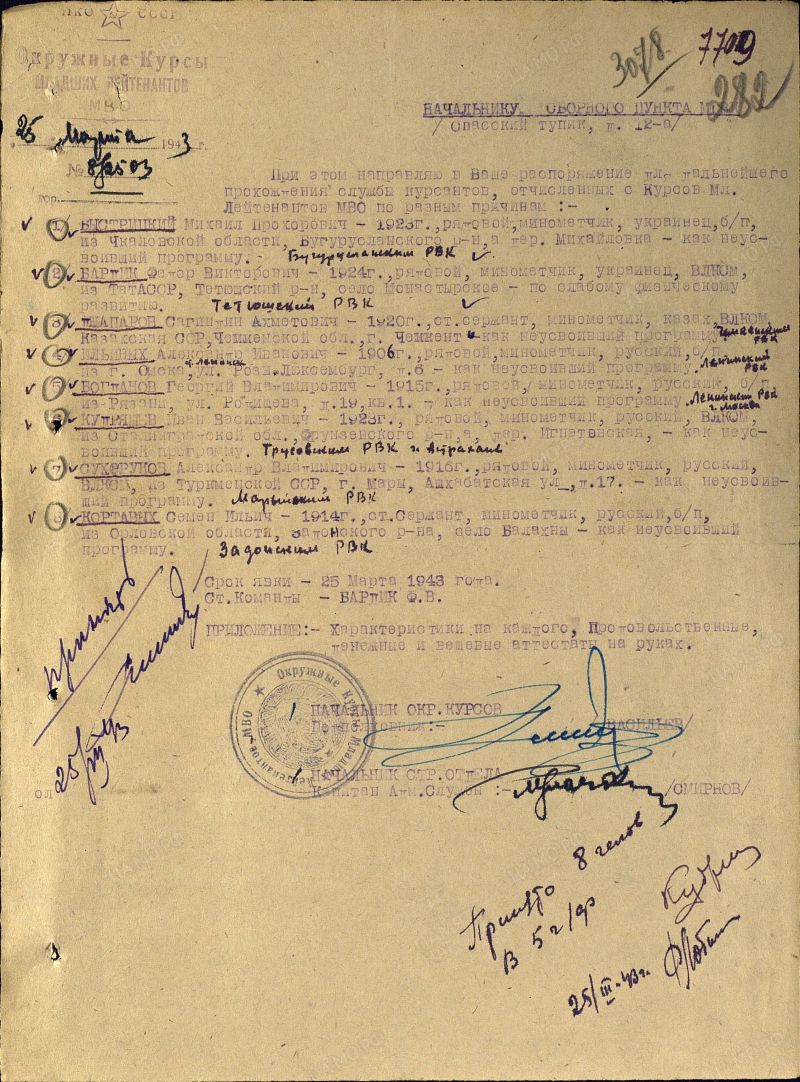 НКО СССР
Окружные Курсы
МЛАДШИХ ЛЕЙТЕНАНТОВ
МВО
25 Марта 1943 г.
№ 8/2503
гор.
3078 7709
282
НАЧАЛЬНИКУ СБОРНОГО ПУНКТА МВО
/Спасский тупик, д. 12-а/
При этом направляю в Ваше распоряжение для дальнейшего
прохождения службы курсантов, отчисленных с Курсов Мл.
Лейтенантов МВО по разным причинам :-
1/ БЫСТРИЦКИЙ Михаил Прохорович - 1923г., рядовой, минометчик, украинец, б/п,
из Чкаловской области, Бугурусланского р-н, а дер. Михайловка - как неус-
воивший программу. - Бугурусланским РВК
2/ БАРДИК Федор Викторович - 1924г., рядовой, минометчик, украинец, ВЛКСМ,
из ТатАССР, Тетюшский р-н, село Монастырское - по слабому физическому
развитию. Тетюшский РВК
3/ ДЖАПАРОВ Сагиндин Ахметович - 1920г., ст.сержант, минометчик, казах, ВЛКСМ,
Казахская ССР, Чемкемской обл., г. Чемкент - как неусвоивший программу. Чимкентским РВК
4/ ИЛЬИНЫХ Александр Иванович - 1906г., рядовой, минометчик, русский, б/п,
из г. Омска, ул. Розы-Люксембург, д.6 - как неусвоивший программу. Ленинский РВК
5/ БОГДАНОВ Георгий Владимирович - 1915г., рядовой, минометчик, русский, б/п,
из Рязани, ул. Родищева, д.19, кв.1. - как неусвоивший программу. Ленинским РВК г. Москва
КУДРЯШЕВ Иван Василиевич - 1923г., рядовой, минометчик, русский, ВЛКСМ,
из Сталинградской обл., Фрунзевского р-н, а, дер. Игнатовская, - как неус-
воивший программу. Трусовским РВК г. Астрахань
7/ СУХОРУКОВ Александр Владимирович - 1916г., рядовой, минометчик, русский,
ВЛКСМ, из Туркменской ССР, г. Мары, Ашхабатская ул., д.17. - как неусвоив-
ший программу. Марыйским РВК
8/ КОРТАВЫХ Семен Ильич - 1914г., ст.Сержант, минометчик, русский, б/п,
из Орловской области, Задонского р-на, село Балахны - как неусвоивший
программу. Задонским РВК
Срок явки - 25 Марта 1943 года.
Ст.Команды - БАРДИК Ф.В.
ПРИЛОЖЕНИЕ:- Характеристики на каждого, Продовольственные,
денежные и вещевые аттестаты на руках.
принял
25/III 43
Окружные Курсы Младших Лейтенантов МВО
НАЧАЛЬНИК ОКР.КУРСОВ
Подполковник:- /ВАСИЛЬЕВ/
НАЧАЛЬНИК СТР.ОТДЕЛА
Капитан Адм.Службы :- /СМИРНОВ/
Принято 8 челов
в 5 г/ф
25/III-43г.